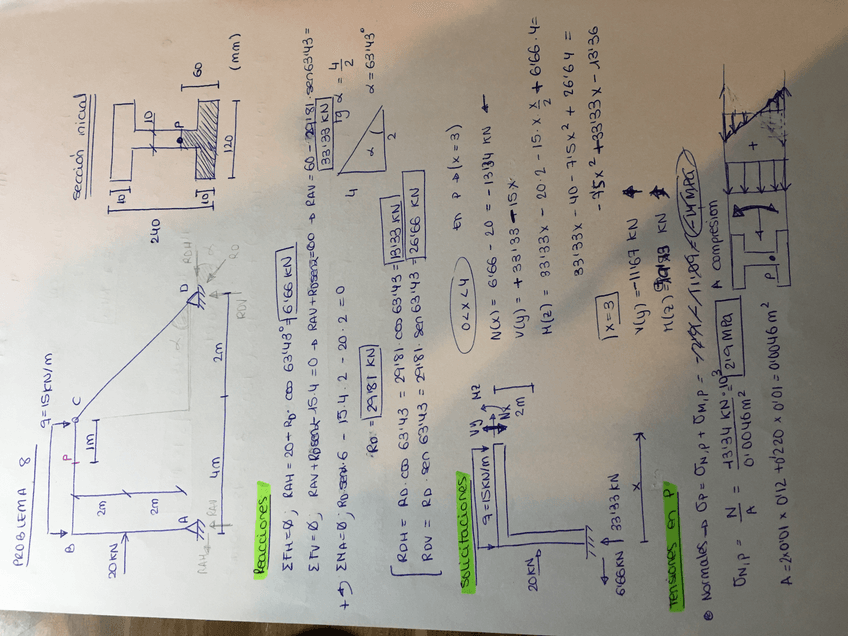 PROBLEMA 8
q=15KN/m
B
P
C
1m
2m
2m
20KN
A
RAH
RAV
D
RDH
RDV
RD
α
4m
2m
Sección inicial
10
240
10
10
P
60
120
(mm)
Reacciones
ΣFH=0; RAH = 20 + RD. cos 63'43° = 6'66 KN
ΣFV=0; RAV + RDsenα - 15.4 = 0 → RAV + RDsenα = 60 → RAV = 60 - 29'81.sen63'43 =
33'33 KN
+ ΣMA=0; RDsenα.6 - 15.4.2 - 20.2 = 0
RD = 29'81 KN
4
α
2
tg α = 4/2
α = 63'43°
RDH = RD. cos 63'43 = 29'81. cos 63'43 = 13'33 KN
RDV = RD. sen 63'43 = 29'81. sen 63'43 = 26'66 KN
Solicitaciones
q=15KN/m
Vy
Mz
Nx
2m
20KN
6'66KN
33'33 KN
x
0<x<4
En P → (x=3)
N(x) = 6'66 - 20 = -13'34 KN ←
V(y) = +33'33 - 15x
M(z) = 33'33x - 20.2 - 15.x x/2 + 6'66.4 =
33'33x - 40 - 7'5x² + 26'64 =
-7'5x² + 33'33x - 13'36
x=3
V(y) = -11'67 KN
M(z) KN
Tensiones en P
Normales → σP = σN,P + σM,P = -2'9 - 11'09 = -14 MPa
A compresion
σN,P = N/A = -13'34 KN.10³/0'0046m² = 2'9 MPa
P
+
A = 2.0'01 x 0'12 + 0'220 x 0'01 = 0'0046 m²